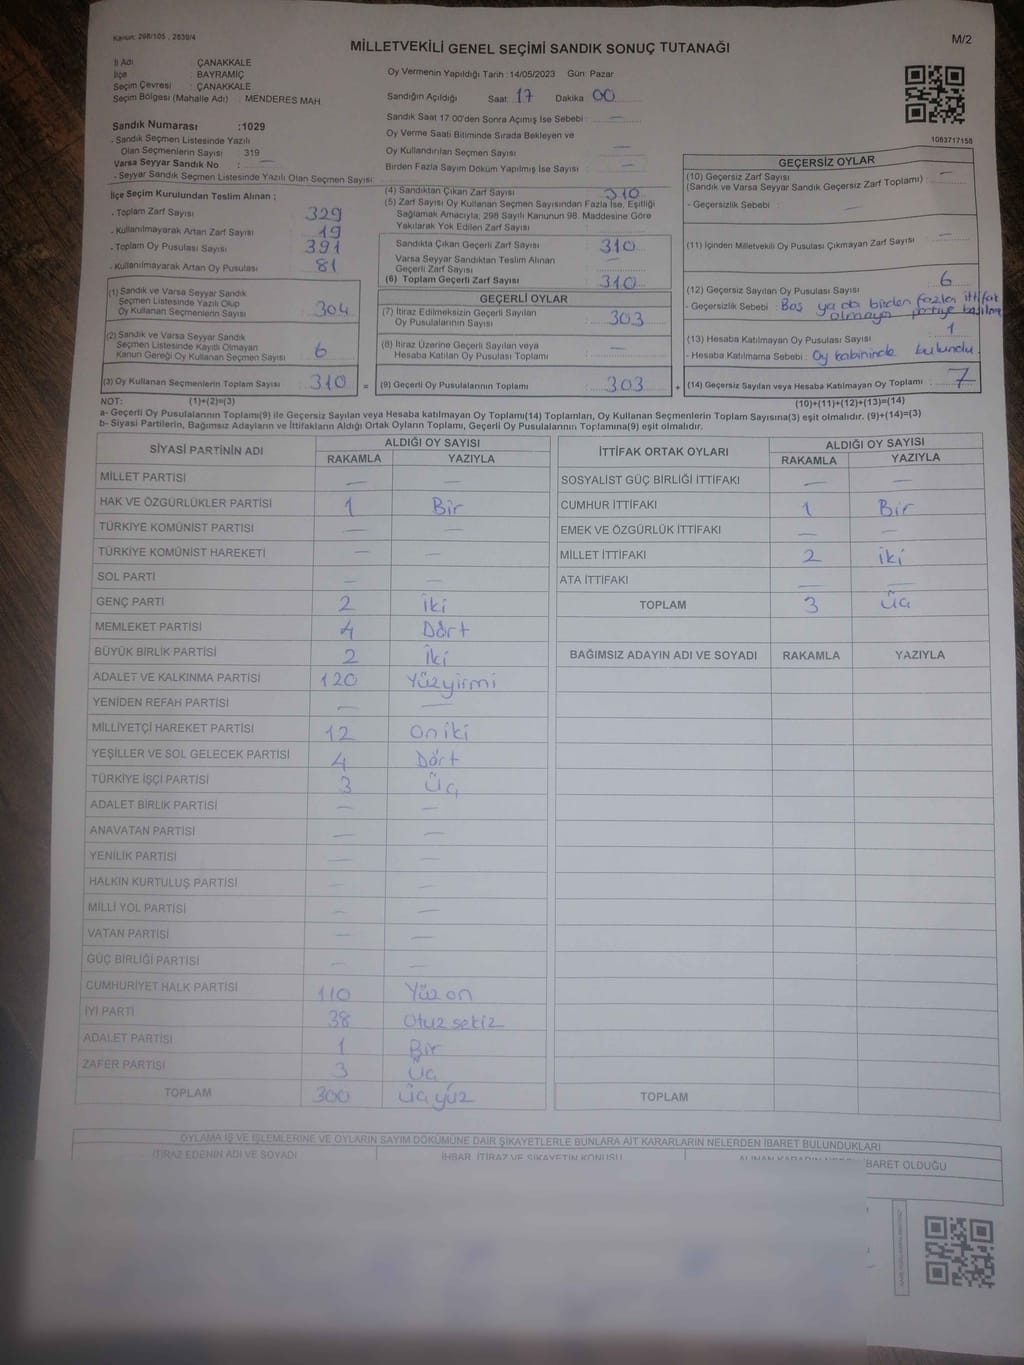 Kanun: 298/105 , 2839/4
M/2
MİLLETVEKİLİ GENEL SEÇİMİ SANDIK SONUÇ TUTANAĞI
İl Adı : ÇANAKKALE
İlçe : BAYRAMİÇ
Seçim Çevresi : ÇANAKKALE
Seçim Bölgesi (Mahalle Adı) : MENDERES MAH.
Oy Vermenin Yapıldığı Tarih :14/05/2023 Gün: Pazar
Sandığın Açıldığı Saat 17 Dakika 00
Sandık Saat 17.00'den Sonra Açılmış İse Sebebi : —
Oy Verme Saati Bitiminde Sırada Bekleyen ve
Oy Kullandırılan Seçmen Sayısı —
Birden Fazla Sayım Döküm Yapılmış İse Sayısı —
1083717158
Sandık Numarası :1029
- Sandık Seçmen Listesinde Yazılı
Olan Seçmenlerin Sayısı 319
Varsa Seyyar Sandık No : —
- Seyyar Sandık Seçmen Listesinde Yazılı Olan Seçmen Sayısı:
İlçe Seçim Kurulundan Teslim Alınan ;
- Toplam Zarf Sayısı 329
- Kullanılmayarak Artan Zarf Sayısı 19
- Toplam Oy Pusulası Sayısı 391
- Kullanılmayarak Artan Oy Pusulası 81
(1) Sandık ve Varsa Seyyar Sandık
Seçmen Listesinde Yazılı Olup
Oy Kullanan Seçmenlerin Sayısı 304
(2) Sandık ve Varsa Seyyar Sandık
Seçmen Listesinde Kayıtlı Olmayan
Kanun Gereği Oy Kullanan Seçmen Sayısı 6
(3) Oy Kullanan Seçmenlerin Toplam Sayısı 310 =
(4) Sandıktan Çıkan Zarf Sayısı 310
(5) Zarf Sayısı Oy Kullanan Seçmen Sayısından Fazla İse, Eşitliği
Sağlamak Amacıyla, 298 Sayılı Kanunun 98. Maddesine Göre
Yakılarak Yok Edilen Zarf Sayısı :
Sandıkta Çıkan Geçerli Zarf Sayısı 310
Varsa Seyyar Sandıktan Teslim Alınan
Geçerli Zarf Sayısı
(6) Toplam Geçerli Zarf Sayısı 310
GEÇERLİ OYLAR
(7) İtiraz Edilmeksizin Geçerli Sayılan
Oy Pusulalarının Sayısı 303
(8) İtiraz Üzerine Geçerli Sayılan veya
Hesaba Katılan Oy Pusulası Toplamı —
(9) Geçerli Oy Pusulalarının Toplamı 303 +
GEÇERSİZ OYLAR
(10) Geçersiz Zarf Sayısı —
(Sandık ve Varsa Seyyar Sandık Geçersiz Zarf Toplamı) :
- Geçersizlik Sebebi : —
(11) İçinden Milletvekili Oy Pusulası Çıkmayan Zarf Sayısı —
(12) Geçersiz Sayılan Oy Pusulası Sayısı 6
- Geçersizlik Sebebi : Boş ya da birden fazla ittifak
olmayan partiye basılma
(13) Hesaba Katılmayan Oy Pusulası Sayısı 1
- Hesaba Katılmama Sebebi : Oy kabininde bulundu
(14) Geçersiz Sayılan veya Hesaba Katılmayan Oy Toplamı : 7
NOT: (1)+(2)=(3) (10)+(11)+(12)+(13)=(14)
a- Geçerli Oy Pusulalarının Toplamı(9) ile Geçersiz Sayılan veya Hesaba katılmayan Oy Toplamı(14) Toplamları, Oy Kullanan Seçmenlerin Toplam Sayısına(3) eşit olmalıdır. (9)+(14)=(3)
b- Siyasi Partilerin, Bağımsız Adayların ve İttifakların Aldığı Ortak Oyların Toplamı, Geçerli Oy Pusulalarının Toplamına(9) eşit olmalıdır.
SİYASİ PARTİNİN ADI ALDIĞI OY SAYISI
RAKAMLA YAZIYLA
MİLLET PARTİSİ — —
HAK VE ÖZGÜRLÜKLER PARTİSİ 1 Bir
TÜRKİYE KOMÜNİST PARTİSİ — —
TÜRKİYE KOMÜNİST HAREKETİ — —
SOL PARTİ — —
GENÇ PARTİ 2 İki
MEMLEKET PARTİSİ 4 Dört
BÜYÜK BİRLİK PARTİSİ 2 İki
ADALET VE KALKINMA PARTİSİ 120 Yüzyirmi
YENİDEN REFAH PARTİSİ — —
MİLLİYETÇİ HAREKET PARTİSİ 12 Oniki
YEŞİLLER VE SOL GELECEK PARTİSİ 4 Dört
TÜRKİYE İŞÇİ PARTİSİ 3 Üç
ADALET BİRLİK PARTİSİ — —
ANAVATAN PARTİSİ — —
YENİLİK PARTİSİ — —
HALKIN KURTULUŞ PARTİSİ — —
MİLLİ YOL PARTİSİ — —
VATAN PARTİSİ — —
GÜÇ BİRLİĞİ PARTİSİ — —
CUMHURİYET HALK PARTİSİ 110 Yüzon
İYİ PARTİ 38 Otuzsekiz
ADALET PARTİSİ 1 Bir
ZAFER PARTİSİ 3 Üç
TOPLAM 300 Üçyüz
İTTİFAK ORTAK OYLARI ALDIĞI OY SAYISI
RAKAMLA YAZIYLA
SOSYALİST GÜÇ BİRLİĞİ İTTİFAKI — —
CUMHUR İTTİFAKI 1 Bir
EMEK VE ÖZGÜRLÜK İTTİFAKI — —
MİLLET İTTİFAKI 2 iki
ATA İTTİFAKI — —
TOPLAM 3 Üç
BAĞIMSIZ ADAYIN ADI VE SOYADI RAKAMLA YAZIYLA
TOPLAM
OYLAMA İŞ VE İŞLEMLERİNE VE OYLARIN SAYIM DÖKÜMÜNE DAİR ŞİKAYETLERLE BUNLARA AİT KARARLARIN NELERDEN İBARET BULUNDUKLARI
İTİRAZ EDENİN ADI VE SOYADI İHBAR, İTİRAZ VE ŞİKAYETİN KONUSU ALINAN KARARIN İBARET OLDUĞU